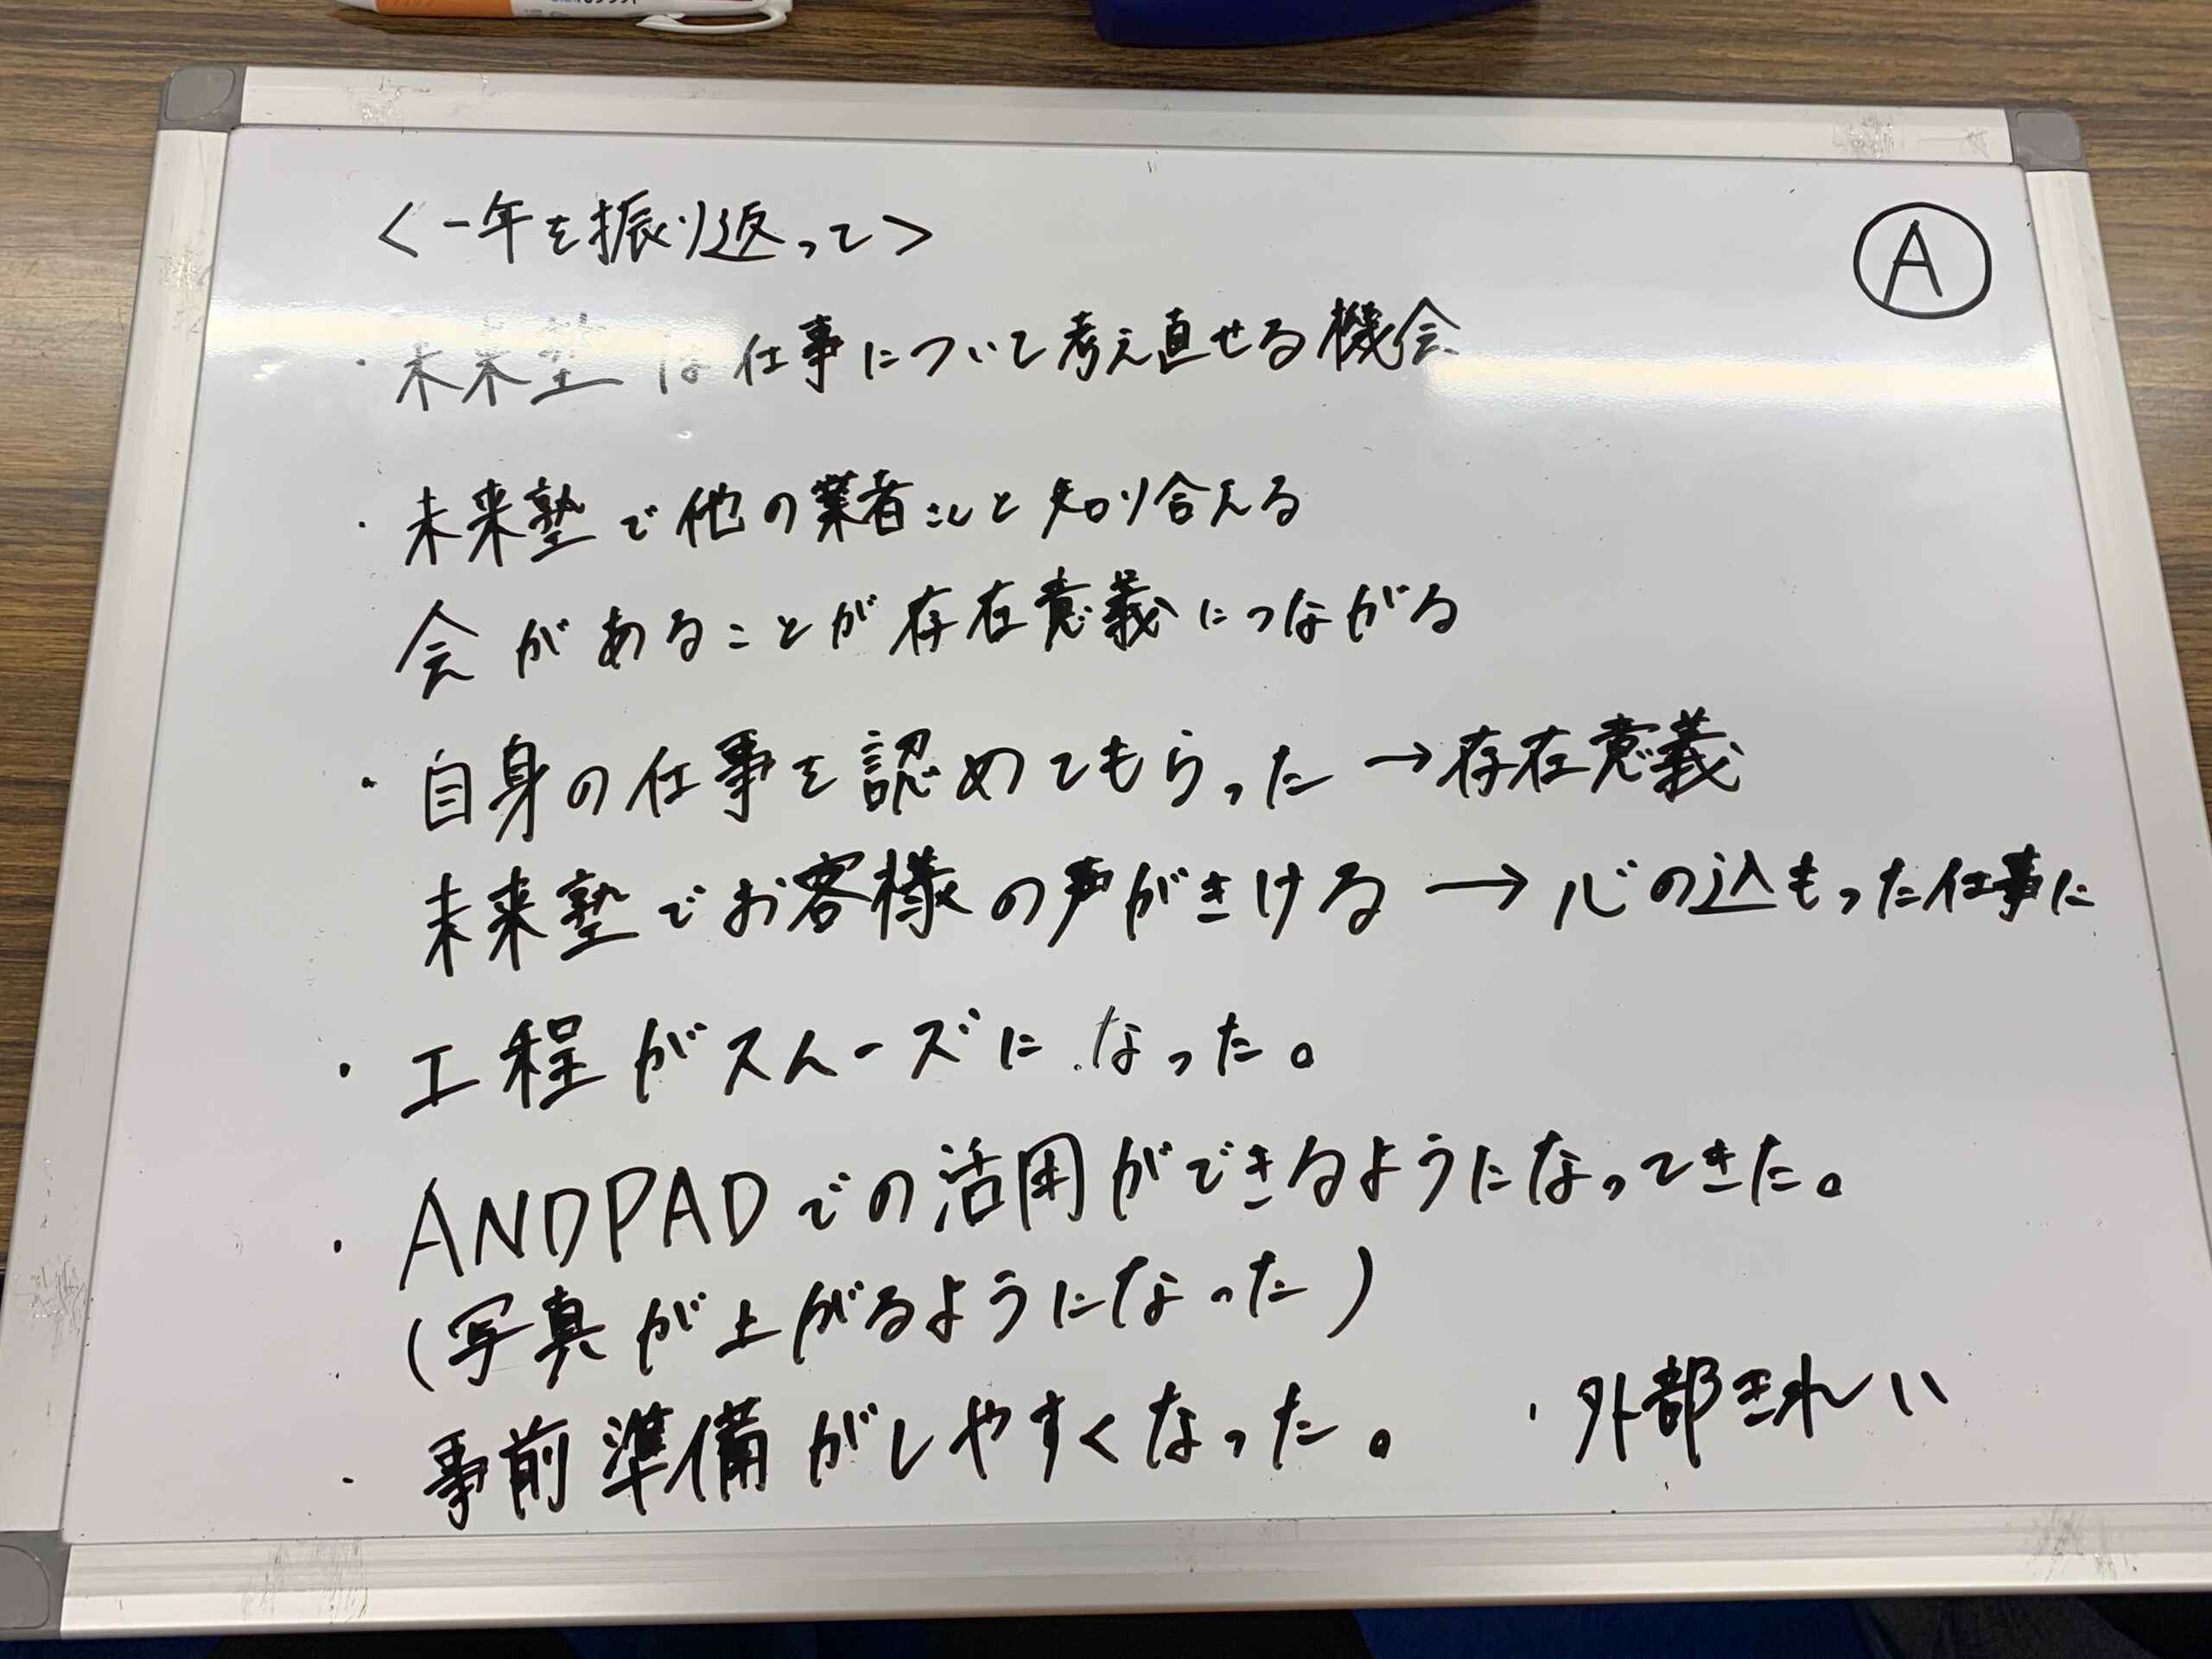 <一年を振り返って>
Ⓐ
・未来塾は仕事について考え直せる機会
・未来塾で他の業者さんと知り合える
会があることが存在意義につながる
・自身の仕事を認めてもらった→存在意義
未来塾でお客様の声がきける→心の込もった仕事に
・工程がスムーズになった。
・ANDPADでの活用ができるようになってきた。
(写真が上がるようになった)
・事前準備がしやすくなった。
・外部きれい